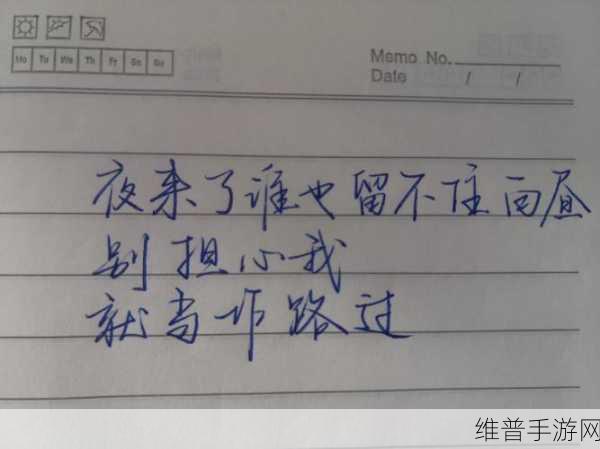 Mo Tu We Th Fr Sa Su
Memo No.
Date / /
夜来了谁也留不住白昼
别担心我
就当作路过
维普手游网